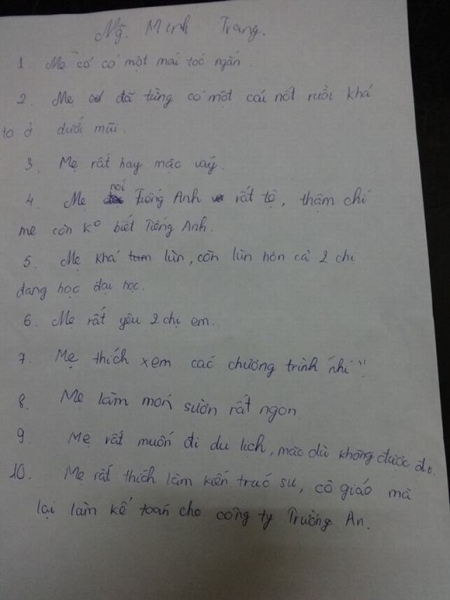 Ng. Minh Trang.
1. Mẹ có có một mái tóc ngắn.
2. Mẹ đã từng có một cái nốt ruồi khá
to ở dưới mũi.
3. Mẹ rất hay mặc váy.
4. Mẹ nói Tiếng Anh rất tệ, thậm chí
mẹ còn k° biết Tiếng Anh.
5. Mẹ khá lùn, còn lùn hơn cả 2 chị
đang học đại học.
6. Mẹ rất yêu 2 chị em.
7. Mẹ thích xem các chương trình "nhí"
8. Mẹ làm món sườn rất ngon.
9. Mẹ rất muốn đi du lịch, mặc dù không được đi.
10. Mẹ rất thích làm kiến trúc sư, cô giáo mà
lại làm kế toán cho công ty Trường An.